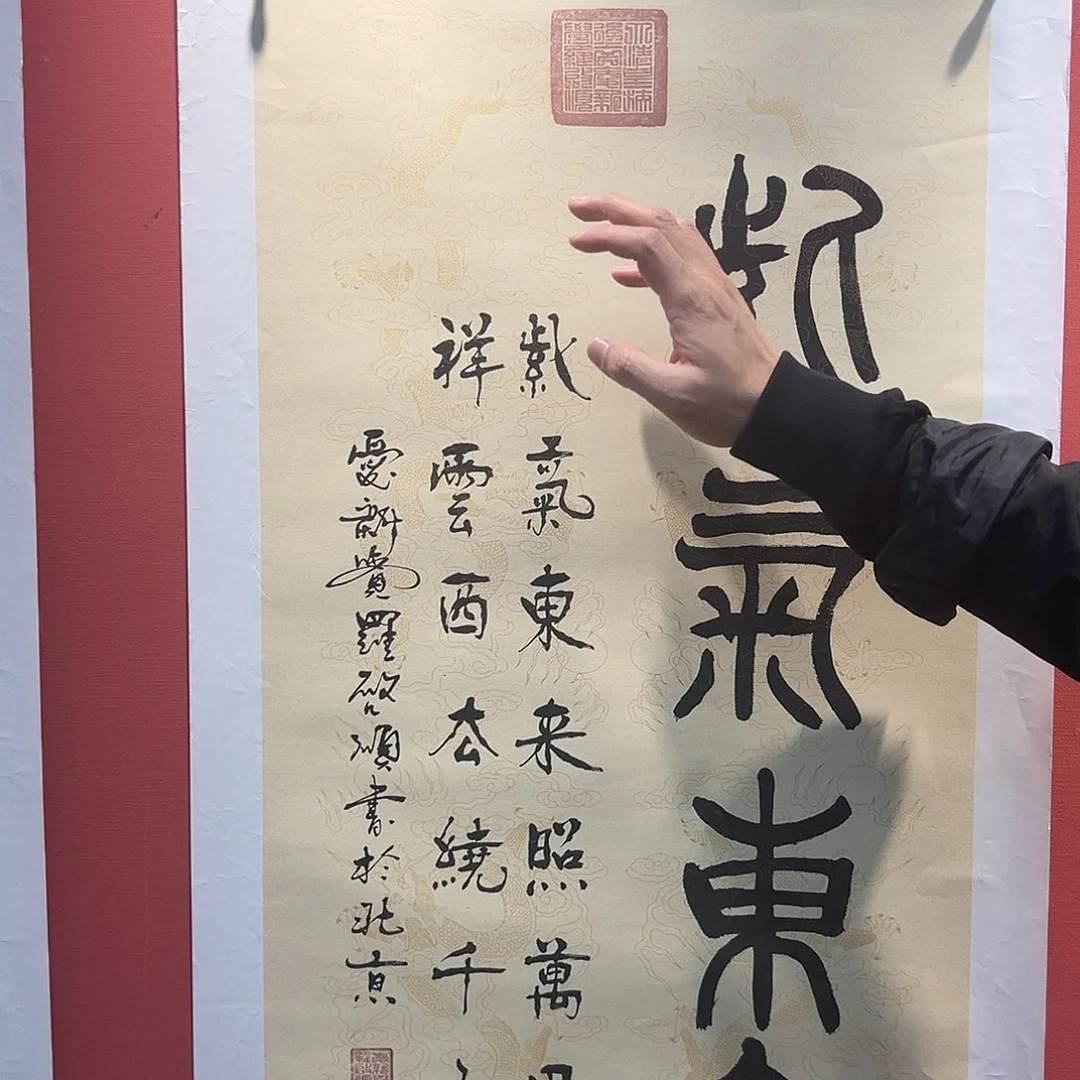 紫氣東
紫氣東来照萬
祥雲西去繞千
愛新覺羅啓碩書於北京